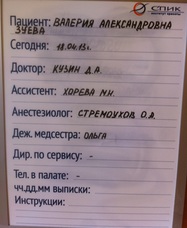 СПИК
Пациент: ВАЛЕРИЯ АЛЕКСАНДРОВНА
ЗУЕВА
Сегодня: 18.04.13г.
Доктор: КУЗИН Д.А.
Ассистент: ХОРЕВА М.Н.
Анестезиолог: СТРЕМОУХОВ О.А.
Деж. медсестра: ОЛЬГА
Дир. по сервису: -
Тел. в палате: -
чч.дд.мм выписки:
Инструкции: